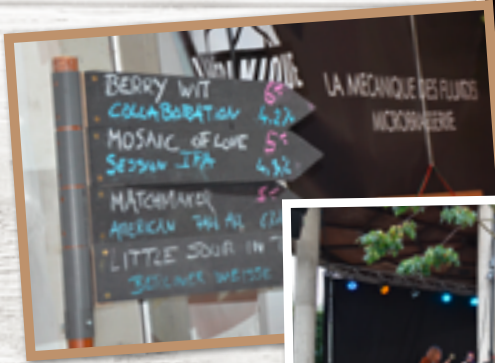 BERRY WIT 6€
COLLABORATION 4.2%
MOSAIC OF LOVE 5€
SESSION IPA 4.3%
MATCHMAKER 5€
AMERICAN PALE ALE
LITTLE SOUR IN
BERLINER WEISSE
LA MÉCANIQUE DES FLUIDES
MICROBRASSERIE